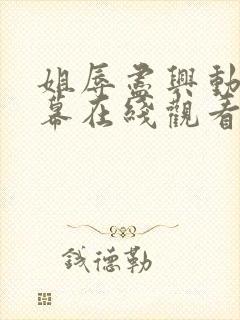 姐辱盡興動
幕在綫觀看
錢德勒